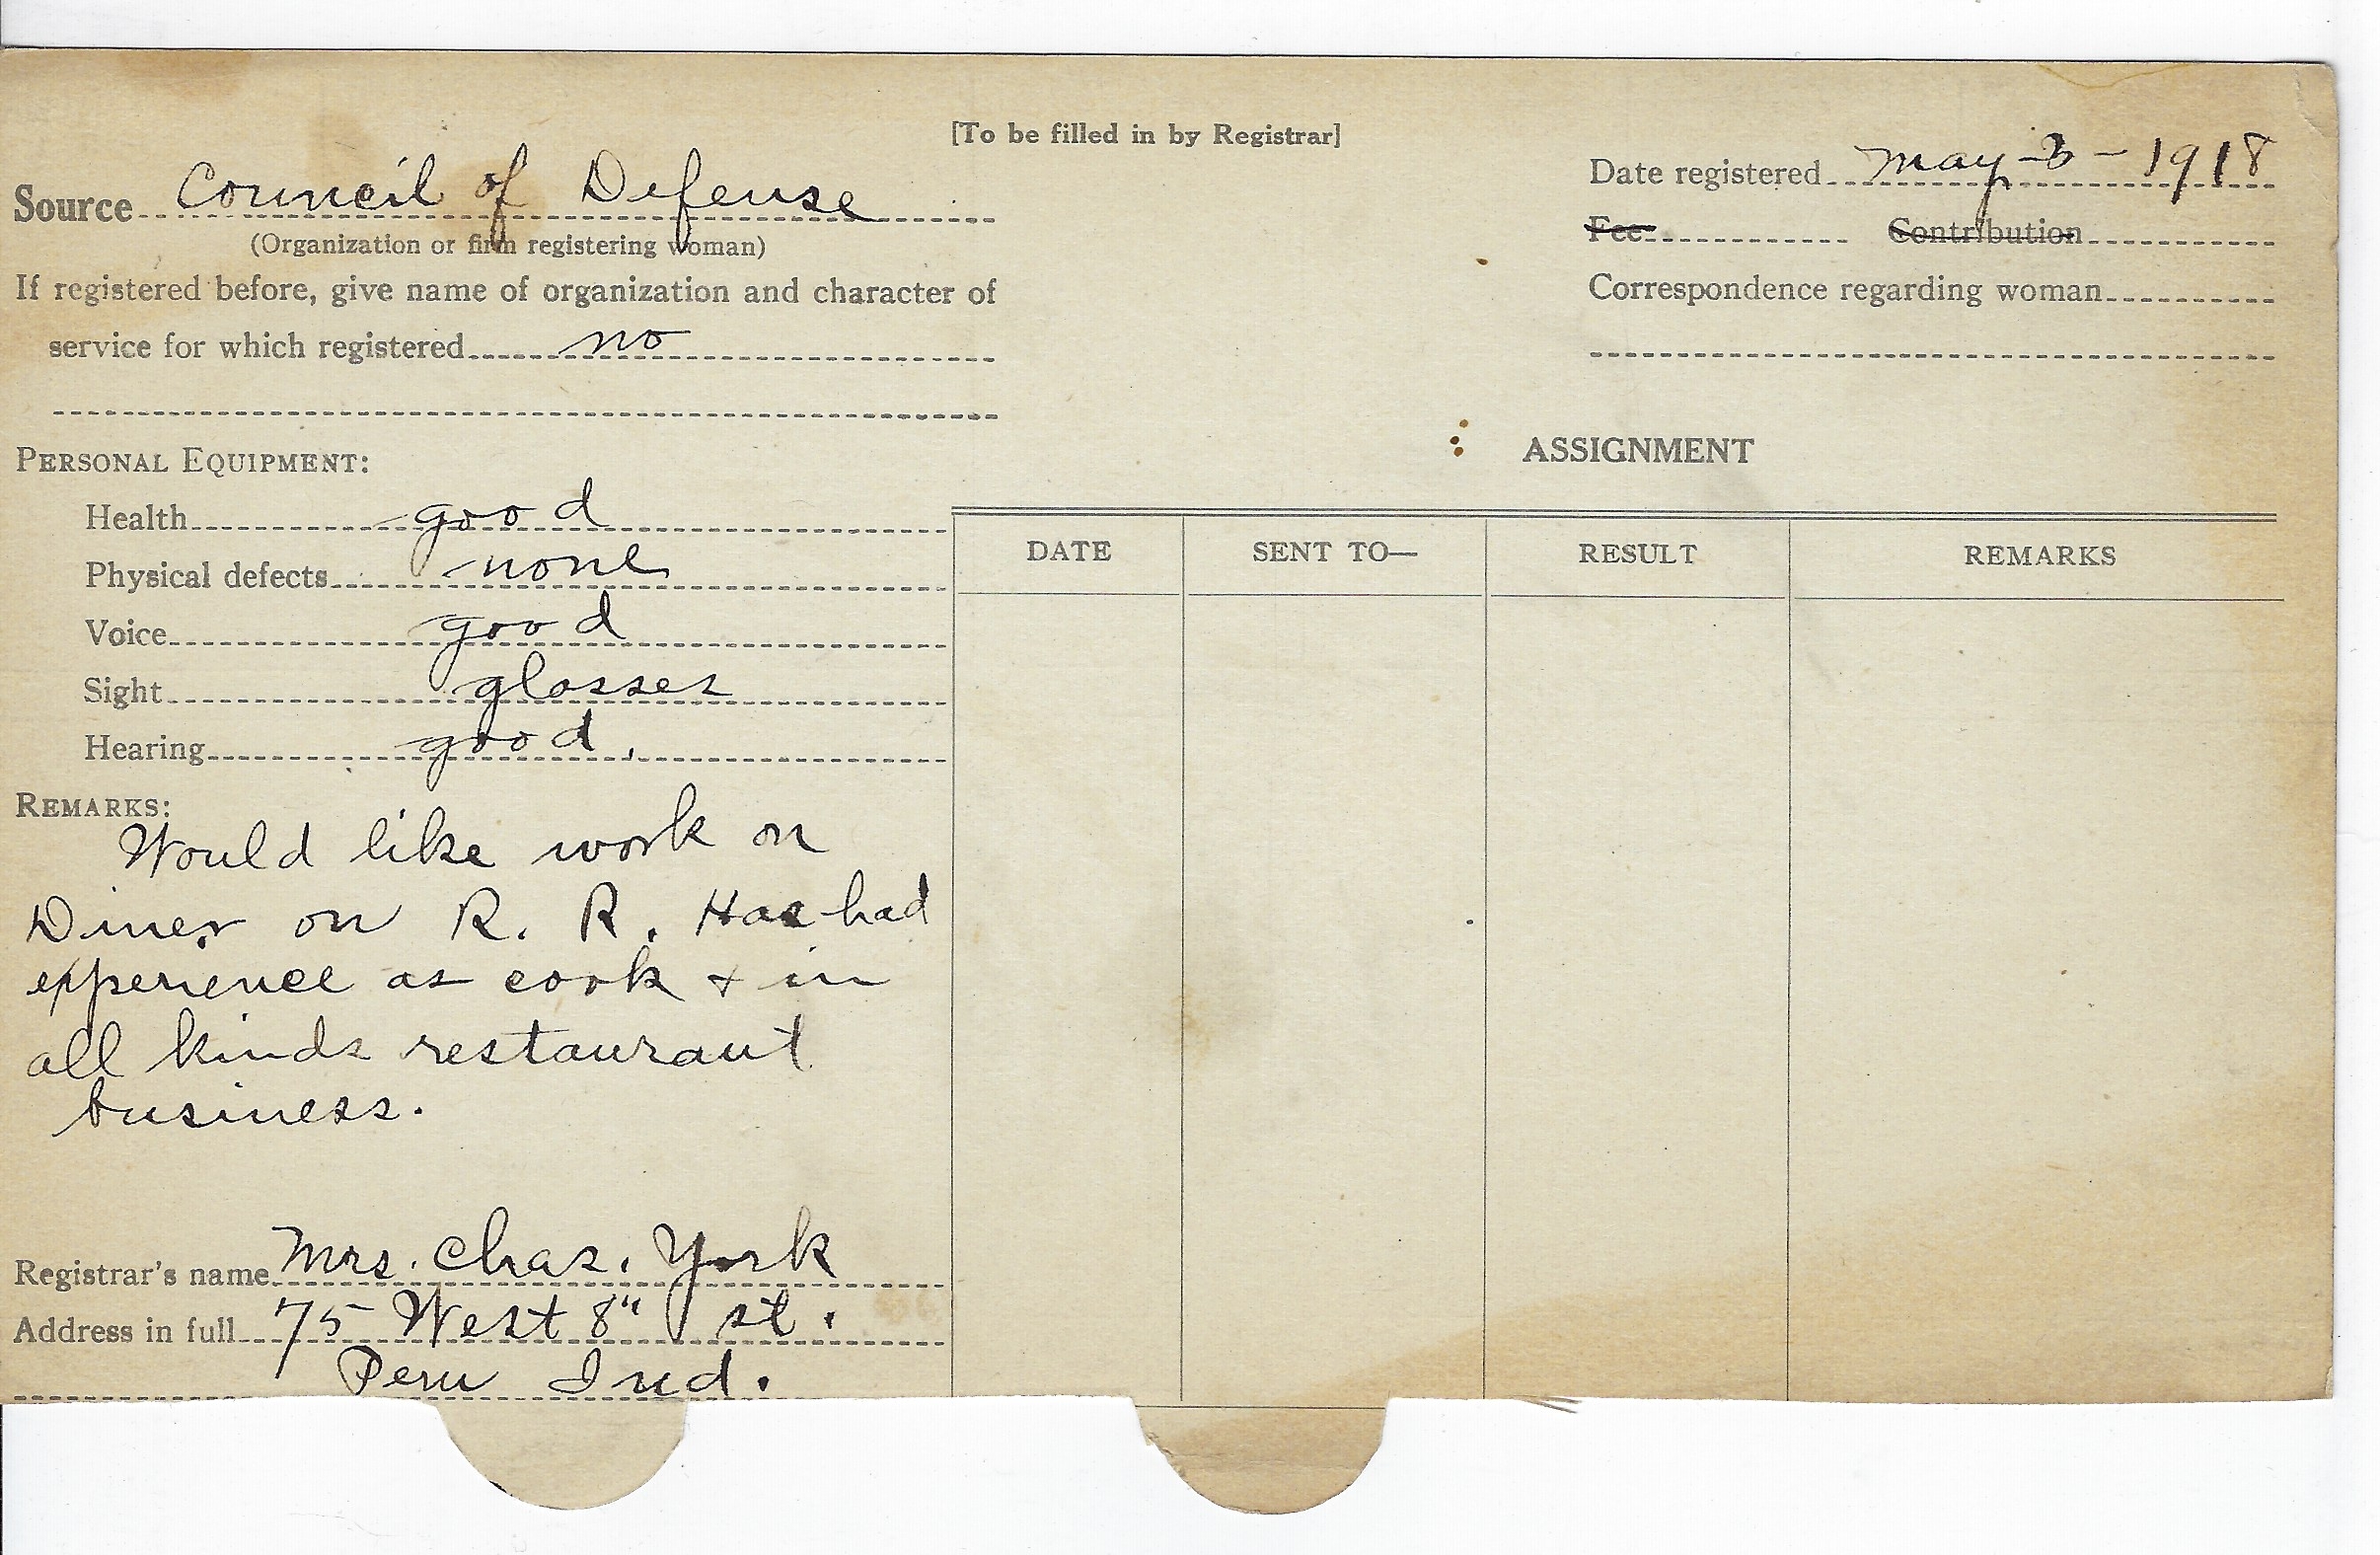 [To be filled in by Registrar]
Source Council of Defense
(Organization or firm registering woman)
If registered before, give name of organization and character of
service for which registered no
Date registered May 3 - 1918
Fee Contribution
Correspondence regarding woman
PERSONAL EQUIPMENT:
Health good
Physical defects none
Voice good
Sight glasses
Hearing good.
REMARKS:
Would like work on
Diner on R. R. Has had
experience as cook + in
all kinds restaurant
business.
Registrar's name Mrs. Chas. York
Address in full 75 West 8" st.
Peru Ind.
ASSIGNMENT
DATE SENT TO— RESULT REMARKS